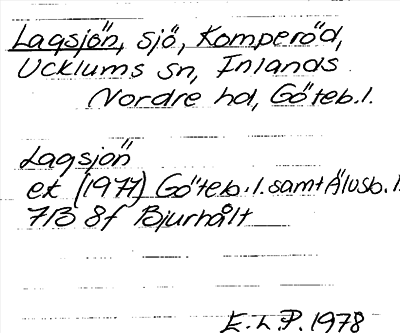 Lagsjön, sjö, Komperöd,
Ucklums sn, Inlands
Nordre hd, Göteb.l.
Lagsjön
ek (1977) Göteb.l. samt Älvsb.l.
7B 8f Bjurhålt
E.L.P. 1978